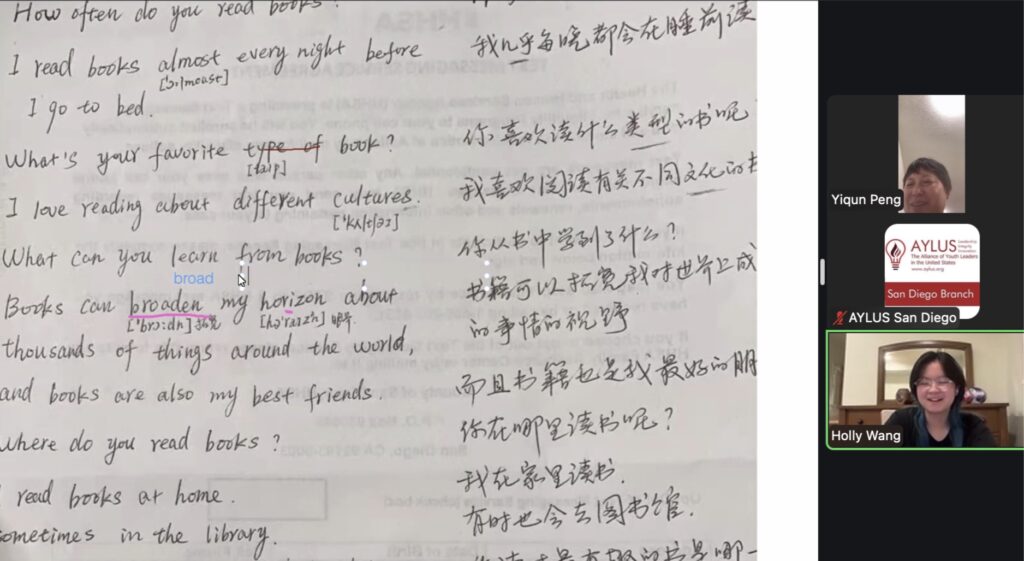 How often do you read books?
I read books almost every night before
[ɔ:lmoust]
I go to bed.
What's your favorite type of book?
[taip]
I love reading about different cultures.
['kʌltʃər]
What can you learn from books?
broad
Books can broaden my horizon about
['brɔ:dn] 拓宽 [hə'raizn] 眼界
thousands of things around the world,
and books are also my best friends.
where do you read books?
I read books at home.
sometimes in the library.
我几乎每晚都会在睡前读
你喜欢读什么类型的书呢
我喜欢阅读有关不同文化的书
你从书中学到了什么?
书籍可以拓宽我对世界上成
的事情的视野
而且书籍也是我最好的朋
你在哪里读书呢?
我在家里读书.
有时也会去图书馆.
Yiqun Peng
AYLUS
The Alliance of Youth Leaders
in the United States
www.aylus.org
San Diego Branch
AYLUS San Diego
Holly Wang